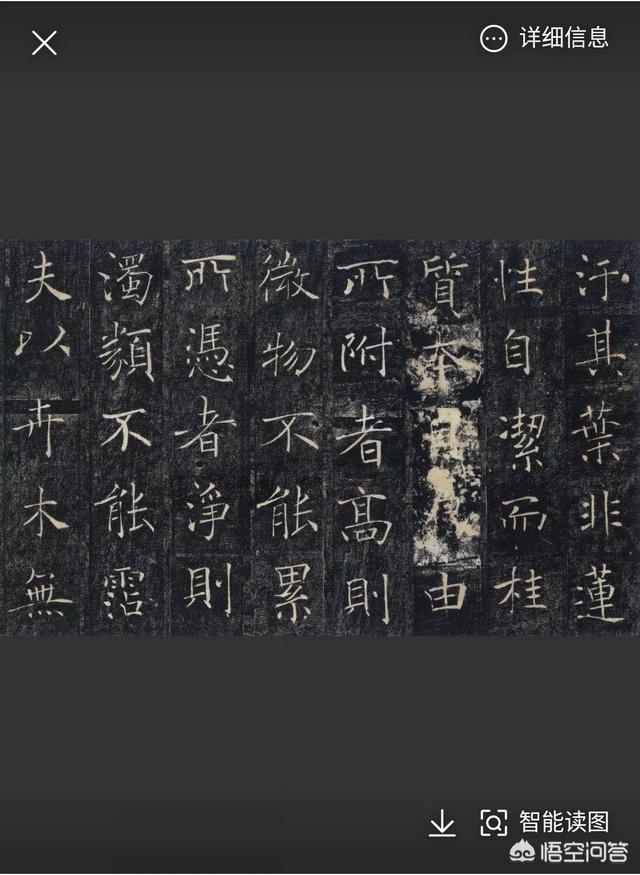 详细信息
汙其葉非蓮
性自潔而桂
質本由
所附者高則
微物不能累
所憑者淨則
濁類不能霑
夫以卉木無
智能读图
悟空问答